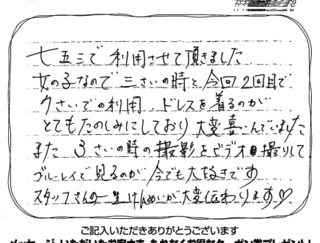 七五三で利用させて頂きました
女の子なので三さいの時と今回2回目で
7さいでの利用、ドレスを着るのが
とてもたのしみにしており大変喜んでいました
また3さいの時の撮影をビデオ撮りして
ブルーレイで見るのが今でも大好きです
スタッフさんの一生けんめいが大変伝わります♡
ご記入いただきありがとうございます